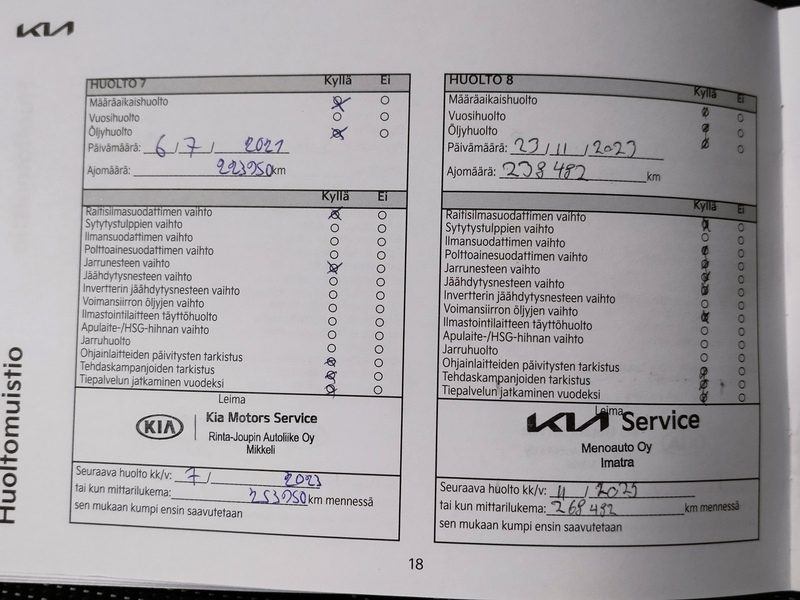 KIA
Huoltomuistio
HUOLTO 7 Kyllä Ei
Määräaikaishuolto
Vuosihuolto
Öljyhuolto
Päivämäärä: 6/7/ 2021
Ajomäärä: 223950km
Kyllä Ei
Raitisilmasuodattimen vaihto
Sytytystulppien vaihto
Ilmansuodattimen vaihto
Polttoainesuodattimen vaihto
Jarrunesteen vaihto
Jäähdytysnesteen vaihto
Invertterin jäähdytysnesteen vaihto
Voimansiirron öljyjen vaihto
Ilmastointilaitteen täyttöhuolto
Apulaite-/HSG-hihnan vaihto
Jarruhuolto
Ohjainlaitteiden päivitysten tarkistus
Tehdaskampanjoiden tarkistus
Tiepalvelun jatkaminen vuodeksi
Leima
KIA Kia Motors Service
Rinta-Joupin Autoliike Oy
Mikkeli
Seuraava huolto kk/v: 7/ 2023
tai kun mittarilukema: 253950km mennessä
sen mukaan kumpi ensin saavutetaan
HUOLTO 8 Kyllä Ei
Määräaikaishuolto
Vuosihuolto
Öljyhuolto
Päivämäärä: 23/11/2023
Ajomäärä: 238 482 km
Kyllä Ei
Raitisilmasuodattimen vaihto
Sytytystulppien vaihto
Ilmansuodattimen vaihto
Polttoainesuodattimen vaihto
Jarrunesteen vaihto
Jäähdytysnesteen vaihto
Invertterin jäähdytysnesteen vaihto
Voimansiirron öljyjen vaihto
Ilmastointilaitteen täyttöhuolto
Apulaite-/HSG-hihnan vaihto
Jarruhuolto
Ohjainlaitteiden päivitysten tarkistus
Tehdaskampanjoiden tarkistus
Tiepalvelun jatkaminen vuodeksi
Leima
KIA Service
Menoauto Oy
Imatra
Seuraava huolto kk/v: 11 / 2025
tai kun mittarilukema: 268 482 km mennessä
sen mukaan kumpi ensin saavutetaan
18